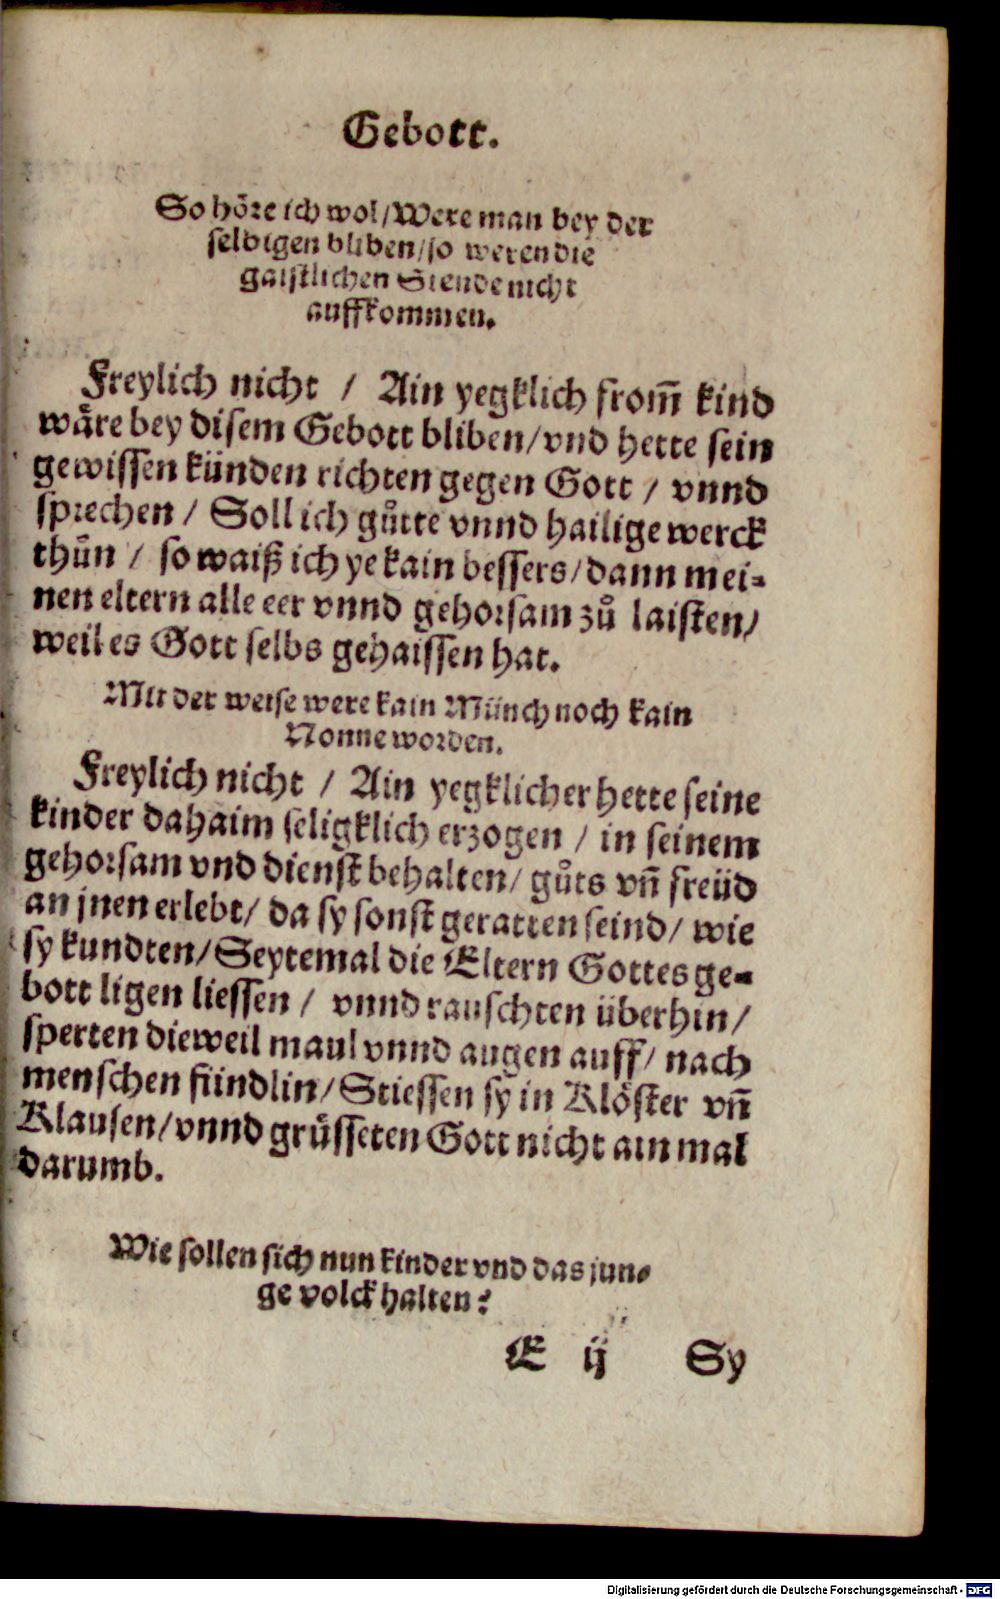 Gebott.
So höre ich wol/Were man bey der
selbigen bliben/so weren die
gaistlichen Stende nicht
auffkommen.
Freylich nicht / Ain yegklich from̃ kind
wåre bey disem Gebott bliben/vnd hette sein
gewissen künden richten gegen Gott / vnnd
sprechen / Soll ich gůtte vnnd hailige werck
thůn / so waiß ich ye kain bessers/dann mei-
nen eltern alle eer vnnd gehorsam zů laisten/
weil es Gott selbs gehaissen hat.
Mit der weise were kain Münch noch kain
Nonne worden.
Freylich nicht / Ain yegklicher hette seine
kinder dahaim seligklich erzogen / in seinem
gehorsam vnd dienst behalten/ gůts vñ freüd
an jnen erlebt/ da sy sonst geratten seind/ wie
sy kundten/Seytemal die Eltern Gottes ge-
bott ligen liessen / vnnd rauschten überhin/
sperten dieweil maul vnnd augen auff/ nach
menschen fündlin/Stiessen sy in Klöster vñ
Klausen/vnnd grůsseten Gott nicht ain mal
darumb.
Wie sollen sich nun kinder vnd das jun-
ge volck halten?
E ij Sy
Digitalisierung gefördert durch die Deutsche Forschungsgemeinschaft - DFG